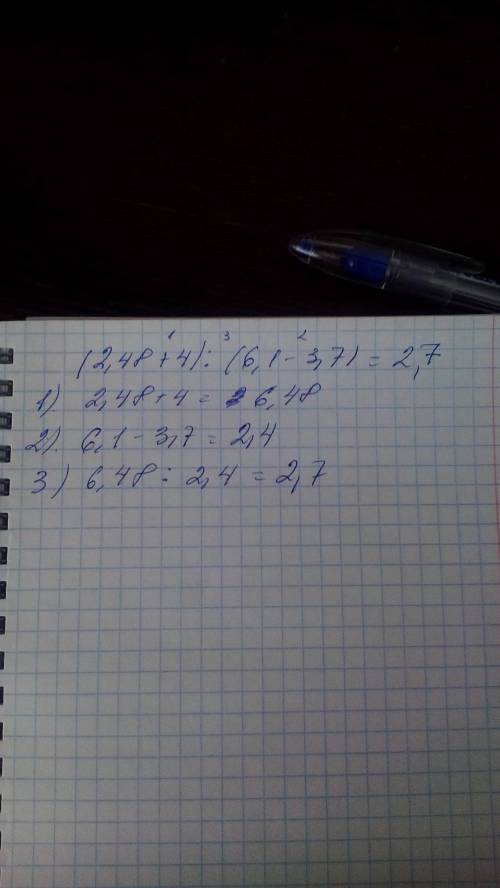 1 3 2
(2,48+4):(6,1-3,7)=2,7
1). 2,48+4= 6,48
2). 6,1-3,7=2,4
3) 6,48:2,4=2,7